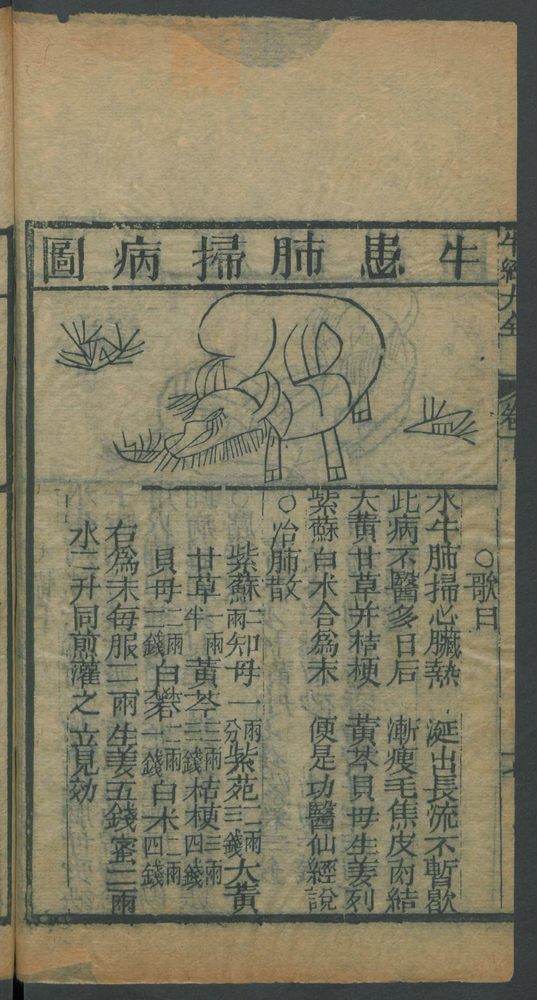 牛經大全
卷下
牛患肺掃病圖
○歌曰
水牛肺掃心臟熱 涎出長流不暫歇
此病不醫多日后 漸瘦毛焦皮肉結
大黃甘草并桔梗 黃芩貝母生姜列
紫蘇白水合爲末 便是功醫仙經說
○冶肺散
紫蘇二兩知母一兩一分紫苑二兩三錢大黃
甘草一兩半黃芩三兩三錢桔梗三兩四錢
貝母二兩二錢白礬二兩一錢白术二兩四錢
右爲末每服二兩生姜五錢蜜二兩
水二升同煎灌之立見効